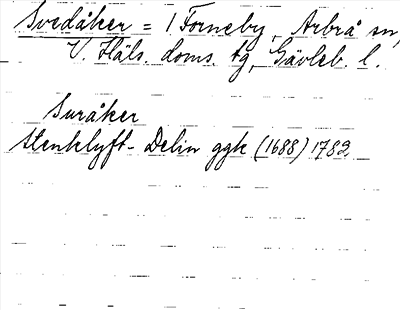 Svedåker = 1 Forneby, Arbrå sn,
V. Häls. doms. tg, Gävleb. l.
Suråker
Stenklyft - Delin ggk (1688) 1782